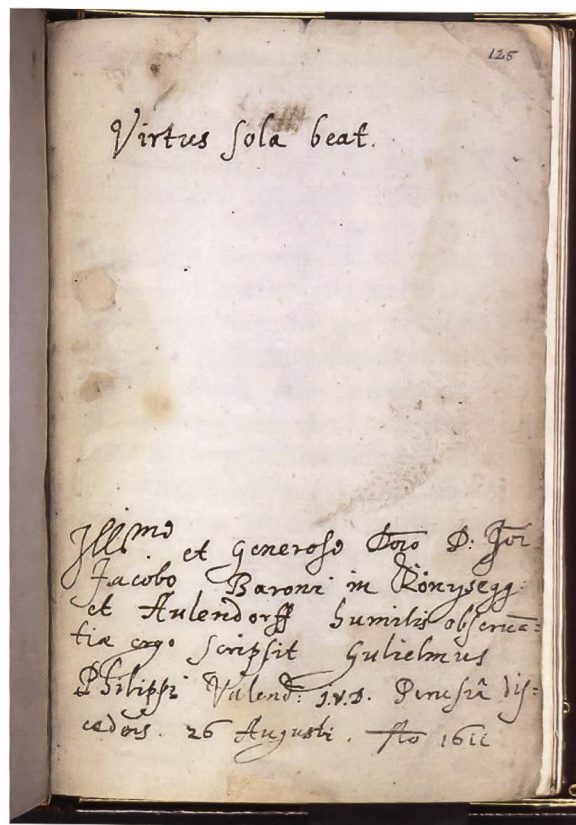 125
Virtus sola beat.
Illmo et Generoso Dno D: Joi
Jacobo Baroni in Königsegg
et Aulendorff humilis observā=
tiæ ergo scripsit Gulielmus
Philippi Valend: J.V.D. Perusiâ dis=
cedens. 26 Augusti. Ao 1611